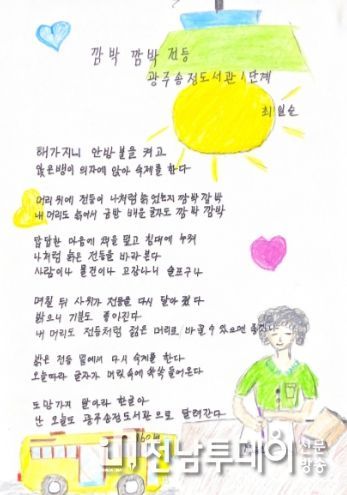 깜박 깜박 전등
광주송정도서관 1단계
최일순
해가지니 안방 불을 켜고
앉은뱅이 의자에 앉아 숙제를 한다
머리 위에 전등이 나처럼 늙었는지 깜박 깜박
내 머리도 늙어서 금방 배운 글자도 깜박 깜박
답답한 마음에 책을 덮고 침대에 누워
나처럼 늙은 전등을 바라본다
사람이나 물건이나 고장나니 슬프구나
며칠 뒤 사위가 전등을 다시 달아 줬다
밝으니 기분도 좋아진다
내 머리도 전등처럼 젊은 머리로 바뀔 수 있으면 좋겠다
밝은 전등 밑에서 다시 숙제를 한다
오늘따라 글자가 머릿속에 쏙쏙 들어온다
도망가지 말아라 한글아
난 오늘도 광주송정도서관으로 달려간다
전남투데이
신문
방송